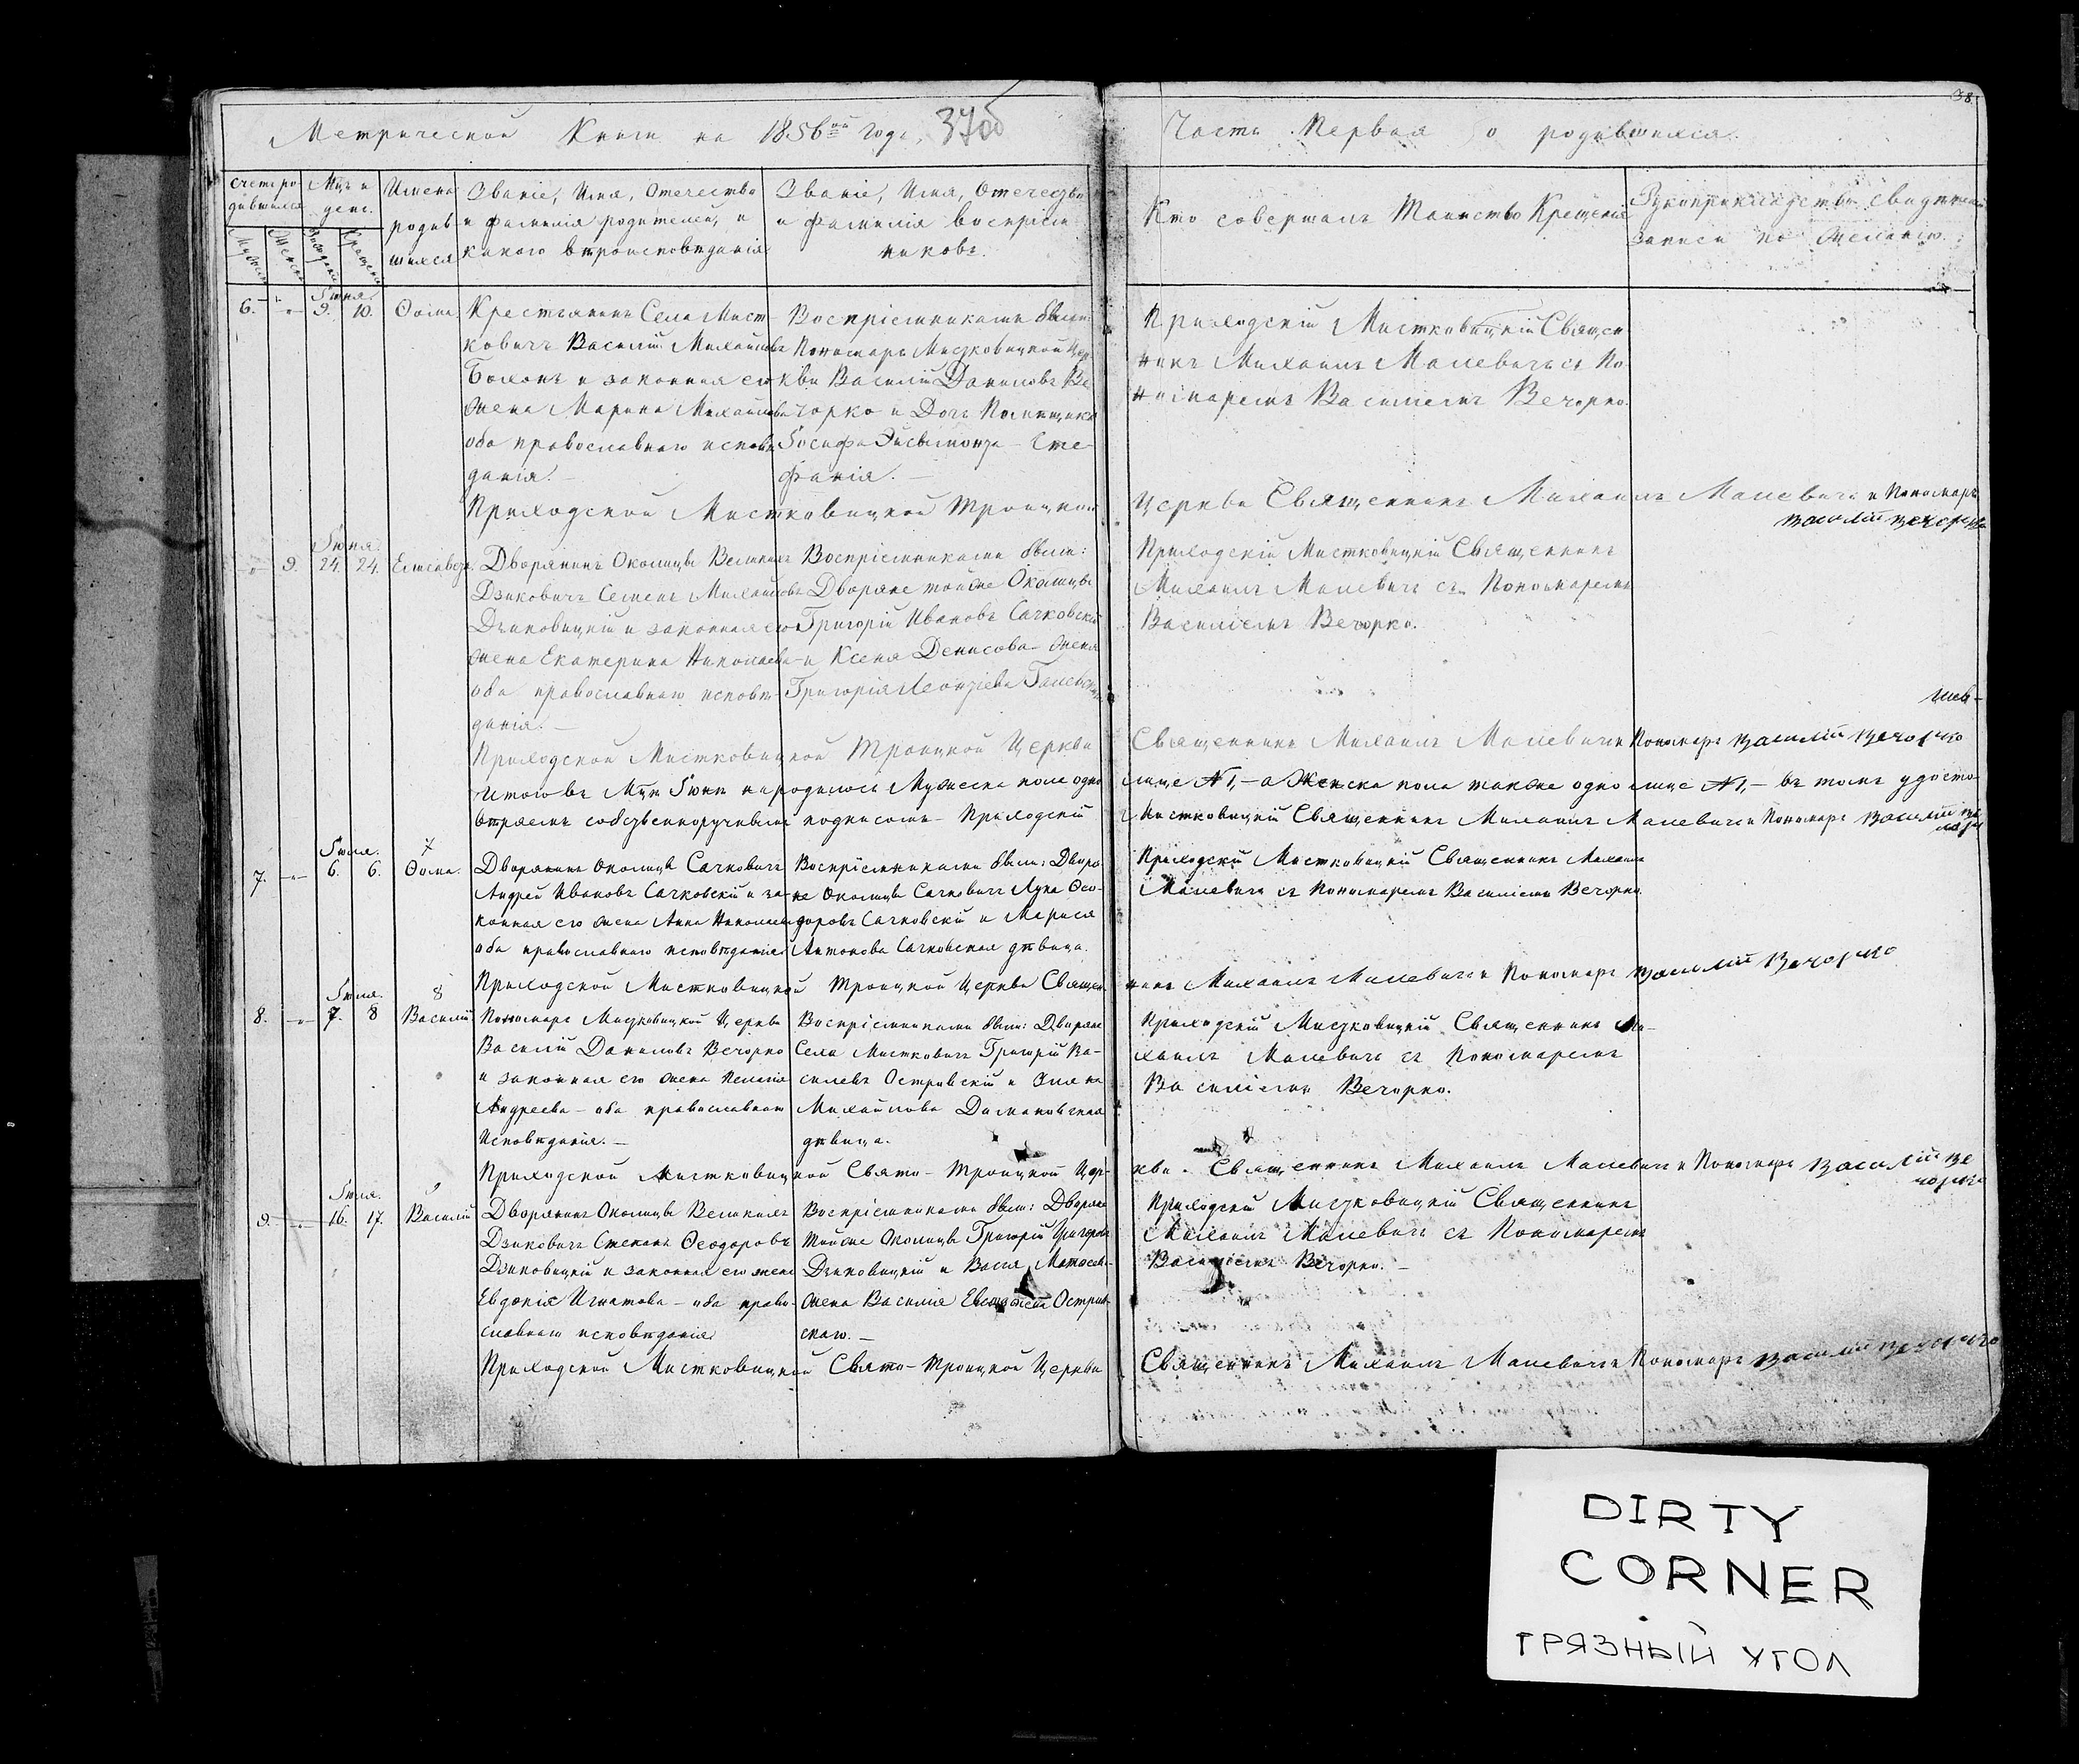 Метрической Книги на 1856ой годъ. 37об
Часть Первая о родившихся.
38
Счетъ родившихся
Мцъ и день.
Имена родившихся
Званіе, Имя, Отечество и фамилія родителей, и какого вѣроисповѣданія
Званіе, Имя, Отечество и Фамилія воспріемниковъ.
Кто совершалъ Таинство Крещенія
Рукоприкладство свидѣтелей записи по желанію.
Мужеска
Женска
Рожденія
Крещенія
Іюня
6. 9. 10. Ѳома.
Крестьянинъ Села Мист-
ковичъ Василій Михайловъ
и законная его
жена Марина Михайлова
оба православнаго исповѣ-
данія. —
Воспріемниками были:
Пономарь Мистковицкой Цер-
кви Василій Даниловъ Ве-
чорко и Дочь Помѣщика
Іосифа Эйсымонта — Сте-
фанія. —
Приходскій Мистковицкій Священ-
никъ Михаилъ Малевичъ съ По-
номаремъ Василіемъ Вечорко.
Приходской Мистковицкой Троицкой Церкви Священникъ Михаилъ Малевичъ и Пономарь
Василій Вечорко
Іюня.
9. 24. 24. Елисавета.
Дворянинъ Околицы Великихъ
Дзиковичъ Семенъ Михайловъ
Дзиковицкій и законная его
жена Екатерина Николаева
оба православнаго исповѣ-
данія. —
Воспріемниками были:
Дворяне тойже Околицы
Григорій Ивановъ Сачковскій
и Ксенія Денисова — жена
Григорія Леонтіева
Приходскій Мистковицкій Священникъ
Михаилъ Малевичъ съ Пономаремъ
Василіемъ Вечорко.
Приходской Мистковицкой Троицкой Церкви Священникъ Михаилъ Малевичъ и Пономарь Василій Вечорко
Итого въ Мцѣ Іюнѣ народилось Мужеска пола одно лице №1, — а Женска пола также одно лице №1, — въ томъ удосто-
вѣряемъ собственноручнымъ подписомъ — Приходскій Мистковицкій Священникъ Михаилъ Малевичъ и Пономарь Василій Ве
чорко
Іюля. 7
7. 6. 6. Ѳома.
Дворянинъ околицы Сачковичъ
Андрей Ивановъ Сачковскій и за-
конная его жена Анна Николаева
оба православнаго исповѣданія
Воспріемниками были: Дворя-
не Околицы Сачковичъ Лука Ѳео-
доровъ Сачковскій и Марися
Антонова Сачковская дѣвица.
Приходскій Мистковицкій Священникъ Михаилъ
Малевичъ съ Пономаремъ Василіемъ Вечорко.
Приходской Мистковицкой Троицкой Церкви Священ-
никъ Михаилъ Малевичъ и Пономарь Василій Вечорко
Іюля. 8
8. 7. 8 Василій.
Пономарь Мистковицкой Церкви
Василій Даниловъ Вечорко
и законная его жена Пелагія
Андреева — оба православнаго
Исповѣданія. —
Воспріемниками были: Дворяне
Села Мистковичъ Григорій Ва-
силевъ Островскій и
Михайлова Домановская
дѣвица.
Приходскій Мистковицкій Священникъ Ми-
хаилъ Малевичъ съ Пономаремъ
Василіемъ Вечорко.
Приходской Мистковицкой Свято-Троицкой Цер-
кви. Священникъ Михаилъ Малевичъ и Пономарь Василій Ве
чорко
Іюля. 9
9. 16. 17. Василій
Дворянинъ Околицы Великихъ
Дзиковичъ Степанъ Ѳеодоровъ
Дзиковицкій и законная его жена
Евдокія Игнатова — оба право-
славнаго исповѣданія
Воспріемниками были: Дворяне
тойже Околицы Григорій Григоровъ
Дзиковицкій и
жена Василія Остров-
скаго. —
Приходскій Мистковицкій Священникъ
Михаилъ Малевичъ съ Пономаремъ
Василіемъ Вечорко. —
Приходской Мистковицкой Свято-Троицкой Церкви Священникъ Михаилъ Малевичъ и Пономарь Василій Вечорко
DIRTY
CORNER
ГРЯЗНЫЙ УГОЛ